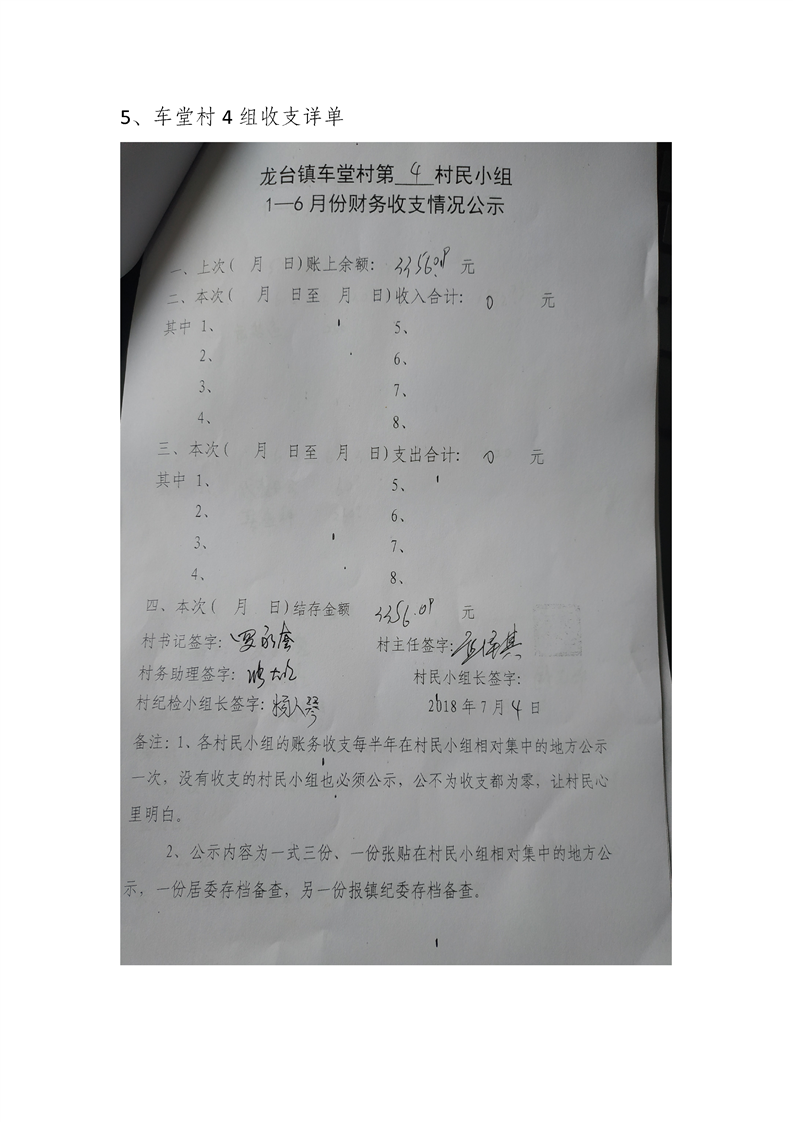 5、车堂村 4 组收支详单
龙台镇车堂村第 4 村民小组
1—6月份财务收支情况公示
一、上次( 月 日)账上余额: 3356.09 元
二、本次( 月 日至 月 日)收入合计: 0 元
其中 1、 5、
2、 6、
3、 7、
4、 8、
三、本次( 月 日至 月 日)支出合计: 0 元
其中 1、 5、
2、 6、
3、 7、
4、 8、
四、本次( 月 日)结存金额 3356.09 元
村书记签字: 村主任签字:
村务助理签字: 村民小组长签字:
村纪检小组长签字: 2018 年 7 月 4 日
备注: 1、各村民小组的账务收支每半年在村民小组相对集中的地方公示
一次，没有收支的村民小组也必须公示，公不为收支都为零，让村民心
里明白。
2、公示内容为一式三份、一份张贴在村民小组相对集中的地方公
示，一份居委存档备查，另一份报镇纪委存档备查。